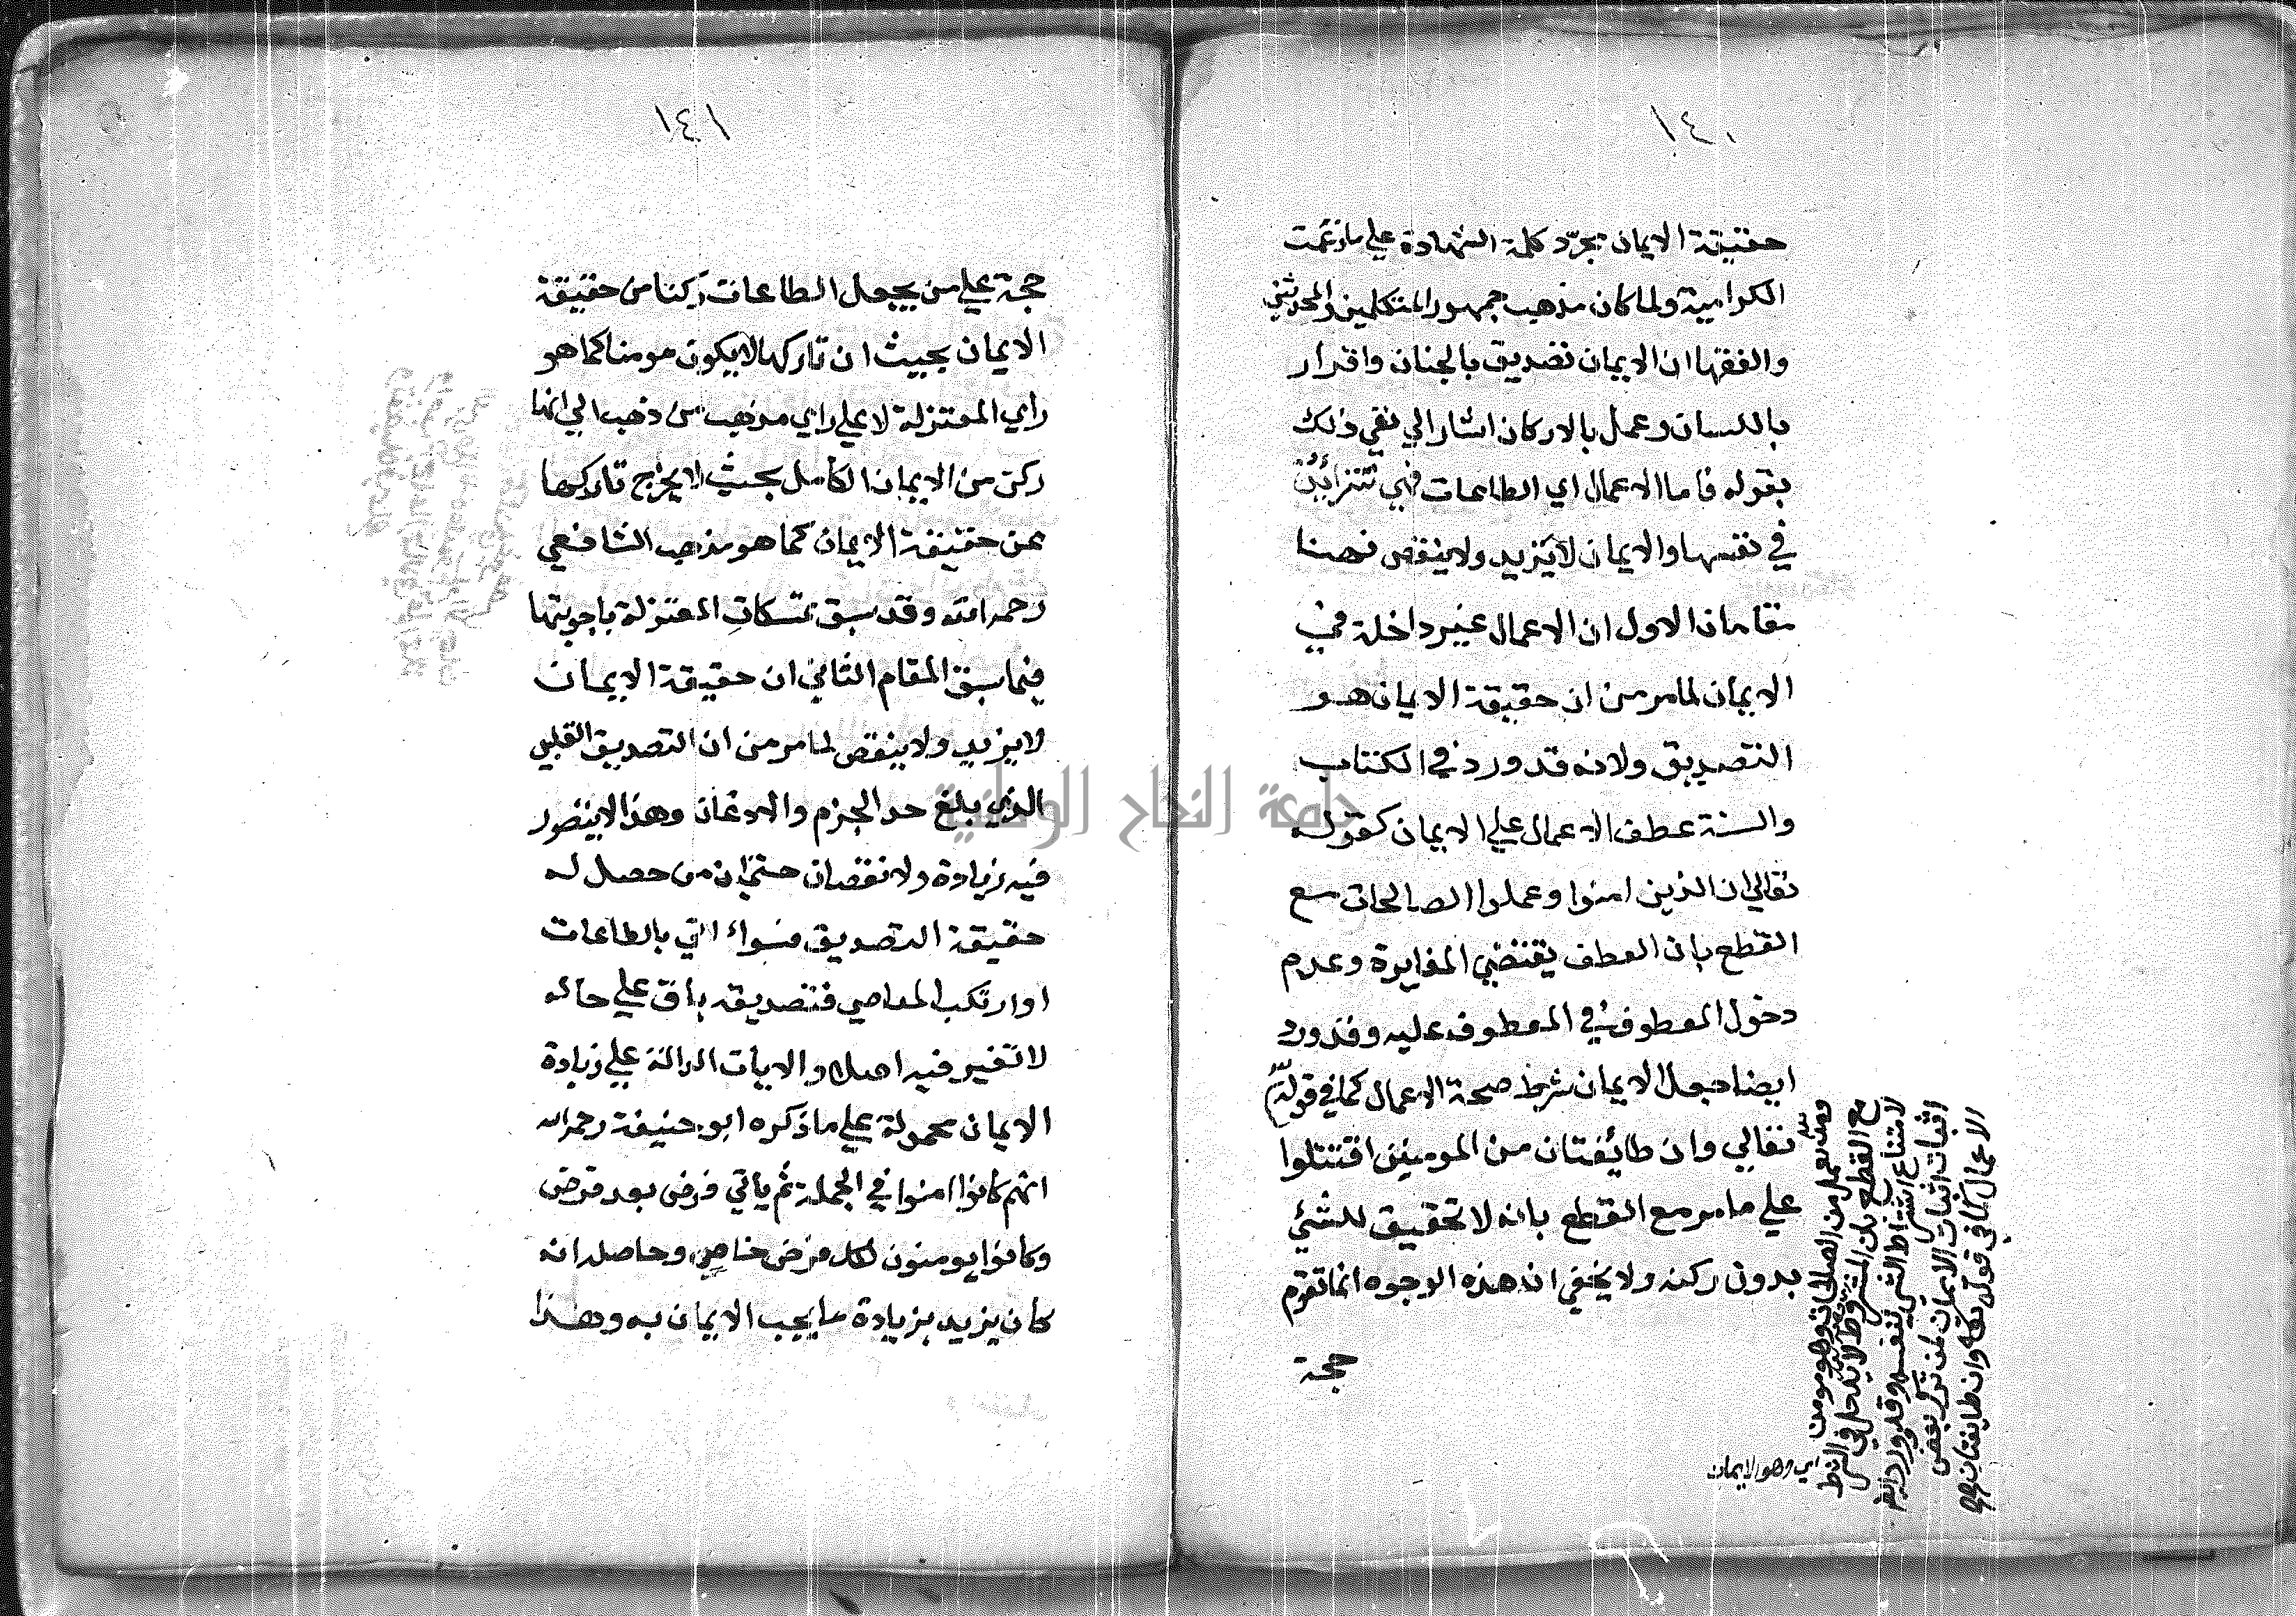 ١٤٠
حقيقة الايمان بجرّد كلمة الشهادة علي مازعمت
الكرامية ولما كان مذهب جمهور المتكلمين والمحدثين
والفقها ان الايمان تصديق بالجنان واقرار
باللسان وعمل بالاركان اشار الي نفي ذلك
بقوله فاما الاعمال اي الطاعات فهي تتزايد
في نفسها والايمان لا يزيد ولا ينقص فهنا
مقامان الاول ان الاعمال غير داخلة في
الايمان لما مر من ان حقيقة الايمان هو
التصديق ولانه قد ورد في الكتاب
والسنة عطف الاعمال علي الايمان كقوله
تعالي ان الذين امنوا وعملوا الصالحات مع
القطع بان العطف يقتضي المغايرة وعدم
دخول المعطوف في المعطوف عليه وقد ورد
ايضا جعل الايمان شرط صحة الاعمال كما في قوله
تعالي وان طائفتان من المومنين اقتتلوا
علي ما مر مع القطع بانه لا تحقيق للشئي
بدون ركنه ولا يخفي ان هذه الوجوه انما تقوم
حجة
ومن يعمل من الصالحات وهو مومن
مع القطع بان المشروط لا يدخل في الشرط
لامتناع اشتراط الشي لنفسه وقد ورد ايضا
اثبات اثبات الايمان لمن ترك بعض
الاعمال كما في قوله تعالي وان طايفتان
اي وهو الايمان
١٤١
حجة علي من يجعل الطاعات ركنا من حقيقة
الايمان بحيث ان تاركها لا يكون مومنا كما هو
راي المعتزلة لا علي راي مذهب من ذهب الي انها
ركن من الايمان الكامل بحيث لا يخرج تاركها
عن حقيقة الايمان كما هو مذهب الشافعي
رحمه الله وقد سبق تمسكات المعتزلة باجوبتها
فيما سبق المقام الثاني ان حقيقة الايمان
لا يزيد ولا ينقص لما مر من ان التصديق القلبي
الذي بلغ حد الجزم والاذعان وهذا لا يتصور
فيه زيادة ولا نقصان حتي ان من حصل له
حقيقة التصديق فسواء اتي بالطاعات
او ارتكب المعاصي فتصديقه باق علي حاله
لا تغير فيه اصلا والايات الدالة علي زيادة
الايمان محمولة علي ما ذكره ابو حنيفة رحمه الله
انهم كانوا امنوا في الجملة ثم ياتي فرض بعد فرض
وكانوا يومنون لكل فرض خاص وحاصله انه
كان يزيد بزيادة ما يجب الايمان به وهذا
جامعة النجاح الوطنية